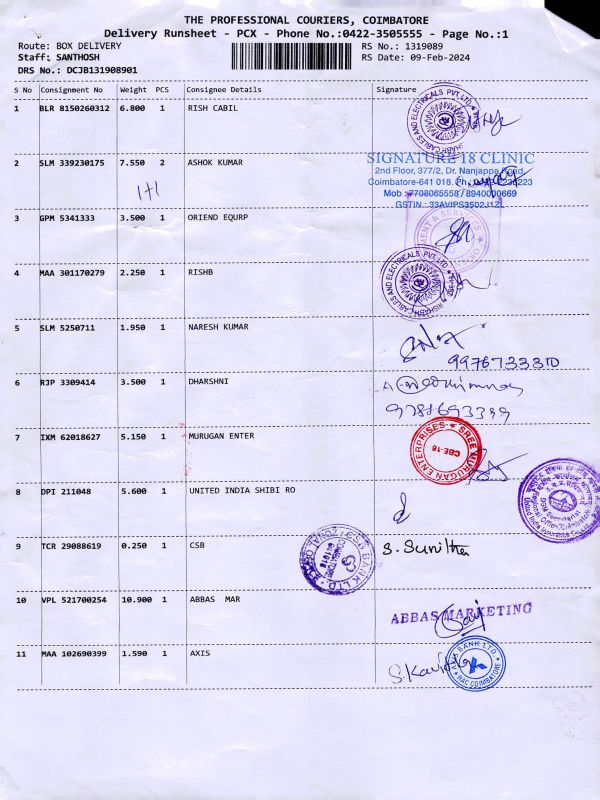 THE PROFESSIONAL COURIERS, COIMBATORE
Delivery Runsheet - PCX - Phone No.:0422-3505555 - Page No.:1
Route: BOX DELIVERY RS No.: 1319089
Staff: SANTHOSH RS Date: 09-Feb-2024
DRS No.: DCJB131908901
S No Consignment No Weight PCS Consignee Details Signature
1 BLR 8150260312 6.800 1 RISH CABIL
CABLES AND ELECTRICALS PVT.LTD.
2 SLM 339230175 7.550 2 ASHOK KUMAR
1+1
SIGNATURE 18 CLINIC
2nd Floor, 377/2, Dr. Nanjappa Road,
Coimbatore-641 018.
Mob :7708065558 / 8940000669
GSTIN : 33AVIPS3502J1ZL
3 GPM 5341333 3.500 1 ORIEND EQURP
4 MAA 301170279 2.250 1 RISHB
RISHABH CABLES AND ELECTRICALS PVT.LTD.
5 SLM 5250711 1.950 1 NARESH KUMAR
6 RJP 3309414 3.500 1 DHARSHNI
7 IXM 62018627 5.150 1 MURUGAN ENTER
SREE MURUGAN ENTERPRISES
CBE-18
8 DPI 211048 5.600 1 UNITED INDIA SHIBI RO
9 TCR 29088619 0.250 1 CSB
S. Sunitha
10 VPL 521700254 10.900 1 ABBAS MAR
ABBAS MARKETING
11 MAA 102690399 1.590 1 AXIS
AXIS BANK LTD.
RAC COIMBATORE